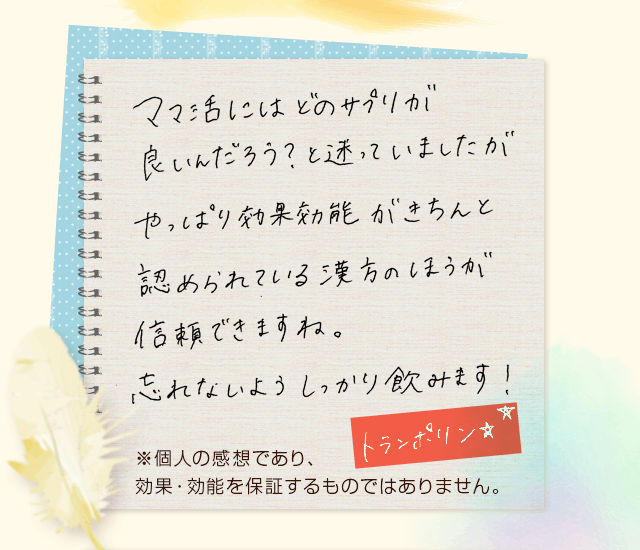 ママ活にはどのサプリが
良いんだろう?と迷っていましたが
やっぱり効果効能がきちんと
認められている漢方のほうが
信頼できますね。
忘れないようしっかり飲みます!
トランポリン☆☆
※個人の感想であり、
効果・効能を保証するものではありません。